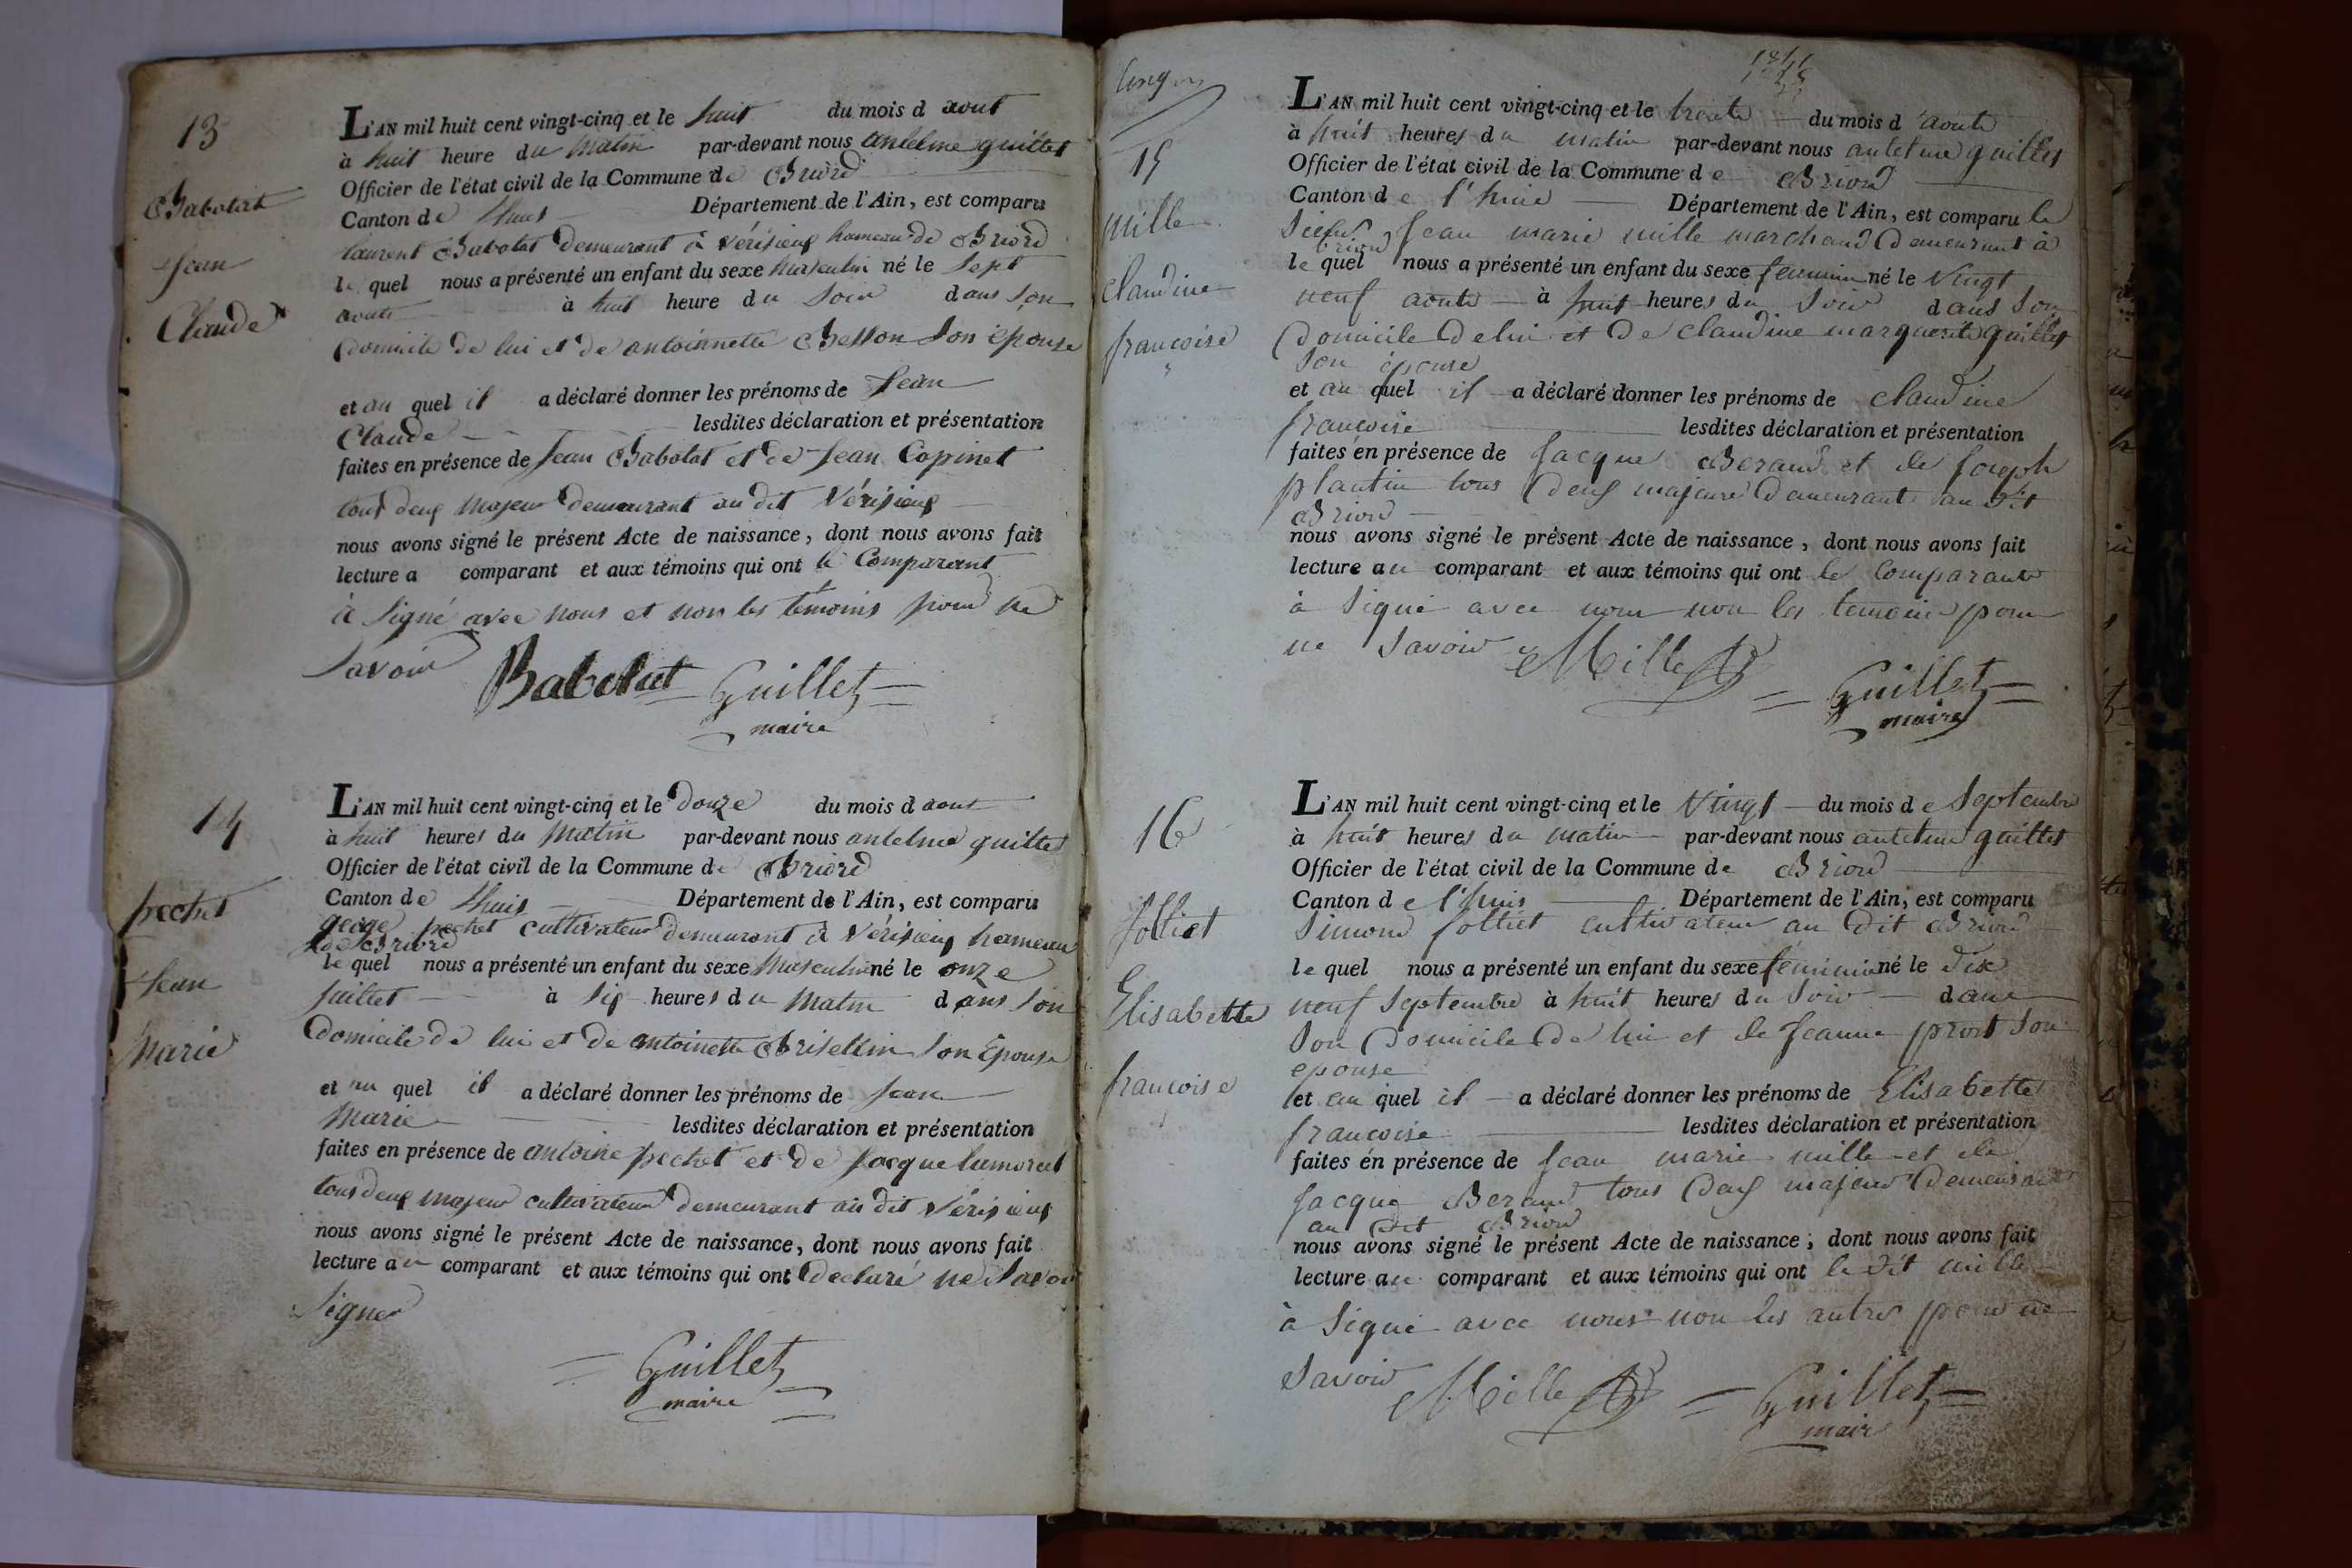 13
Babolat
Jean
Claude
L'AN mil huit cent vingt-cinq et le huit du mois d aout
à huit heure du matin par-devant nous antelme guillet
Officier de l'état civil de la Commune de Briord
Canton de Lhuis Département de l'Ain, est comparu
laurent Babolat demeurant à vérisieux hameau de Briord
le quel nous a présenté un enfant du sexe masculin né le sept
aout à huit heure du soir dans son
domicile de lui et de antoinette Besson son épouse
et au quel il a déclaré donner les prénoms de Jean
Claude lesdites déclaration et présentation
faites en présence de Jean Babolat et de Jean Copinet
tous deux majeur demeurant au dit Vérisieux
nous avons signé le présent Acte de naissance, dont nous avons fait
lecture a comparant et aux témoins qui ont le Comparant
à signé avec nous et non les témoins pour ne
savoir
Babolat Guillet
maire
14
pechet
Jean
Marie
L'AN mil huit cent vingt-cinq et le douze du mois d aout
à huit heures du matin par-devant nous antelme guillet
Officier de l'état civil de la Commune de Briord
Canton de Lhuis Département de l'Ain, est comparu
george pechet cultivateur demeurant à Vérisieux hameau
de Briord
le quel nous a présenté un enfant du sexe masculin né le onze
juillet à six heures du matin dans son
domicile de lui et de antoinette Brisellin son Epouse
et au quel il a déclaré donner les prénoms de Jean
Marie lesdites déclaration et présentation
faites en présence de antoine pechet et de Jacque
tous deux majeur cultivateur demeurant au dit Vérisieux
nous avons signé le présent Acte de naissance, dont nous avons fait
lecture au comparant et aux témoins qui ont declaré ne savoir
signer
Guillet
maire
15
mille
claudine
francoise
L'AN mil huit cent vingt-cinq et le trente du mois d aoute
à huit heures du matin par-devant nous antelme guillet
Officier de l'état civil de la Commune de Briord
Canton de l'huis Département de l'Ain, est comparu le
sieur Jean marie mille marchand demeurant à
briord
le quel nous a présenté un enfant du sexe feminin né le vingt
neuf aoute à huit heures du soir dans son
domicile de lui et de claudine marguerite guillet
son épouse
et au quel il a déclaré donner les prénoms de claudine
francoise lesdites déclaration et présentation
faites en présence de Jacque Beraud et de joseph
plantin tous deux majeure demeurant au dit
Briord
nous avons signé le présent Acte de naissance, dont nous avons fait
lecture au comparant et aux témoins qui ont le comparant
à signé avec nous non les temoins pour
ne savoir
Mille Guillet
maire
16
Jolliet
Elisabette
francoise
L'AN mil huit cent vingt-cinq et le vingt du mois de Septembre
à huit heures du matin par-devant nous antelme guillet
Officier de l'état civil de la Commune de Briord
Canton de l'huis Département de l'Ain, est comparu
Simond Jolliet cultivateur au dit Briord
le quel nous a présenté un enfant du sexe féminin né le dix
neuf Septembre à huit heures du soir dans
son domicile de lui et de Jeanne prost son
epouse
et au quel il a déclaré donner les prénoms de Elisabette
francoise lesdites déclaration et présentation
faites en présence de Jean marie mille et de
Jacque Beraud tous deux majeur demeurant
au dit Briord
nous avons signé le présent Acte de naissance, dont nous avons fait
lecture au comparant et aux témoins qui ont le dit mille
à signé avec nous non les autres pour ne
savoir
Mille Guillet
maire